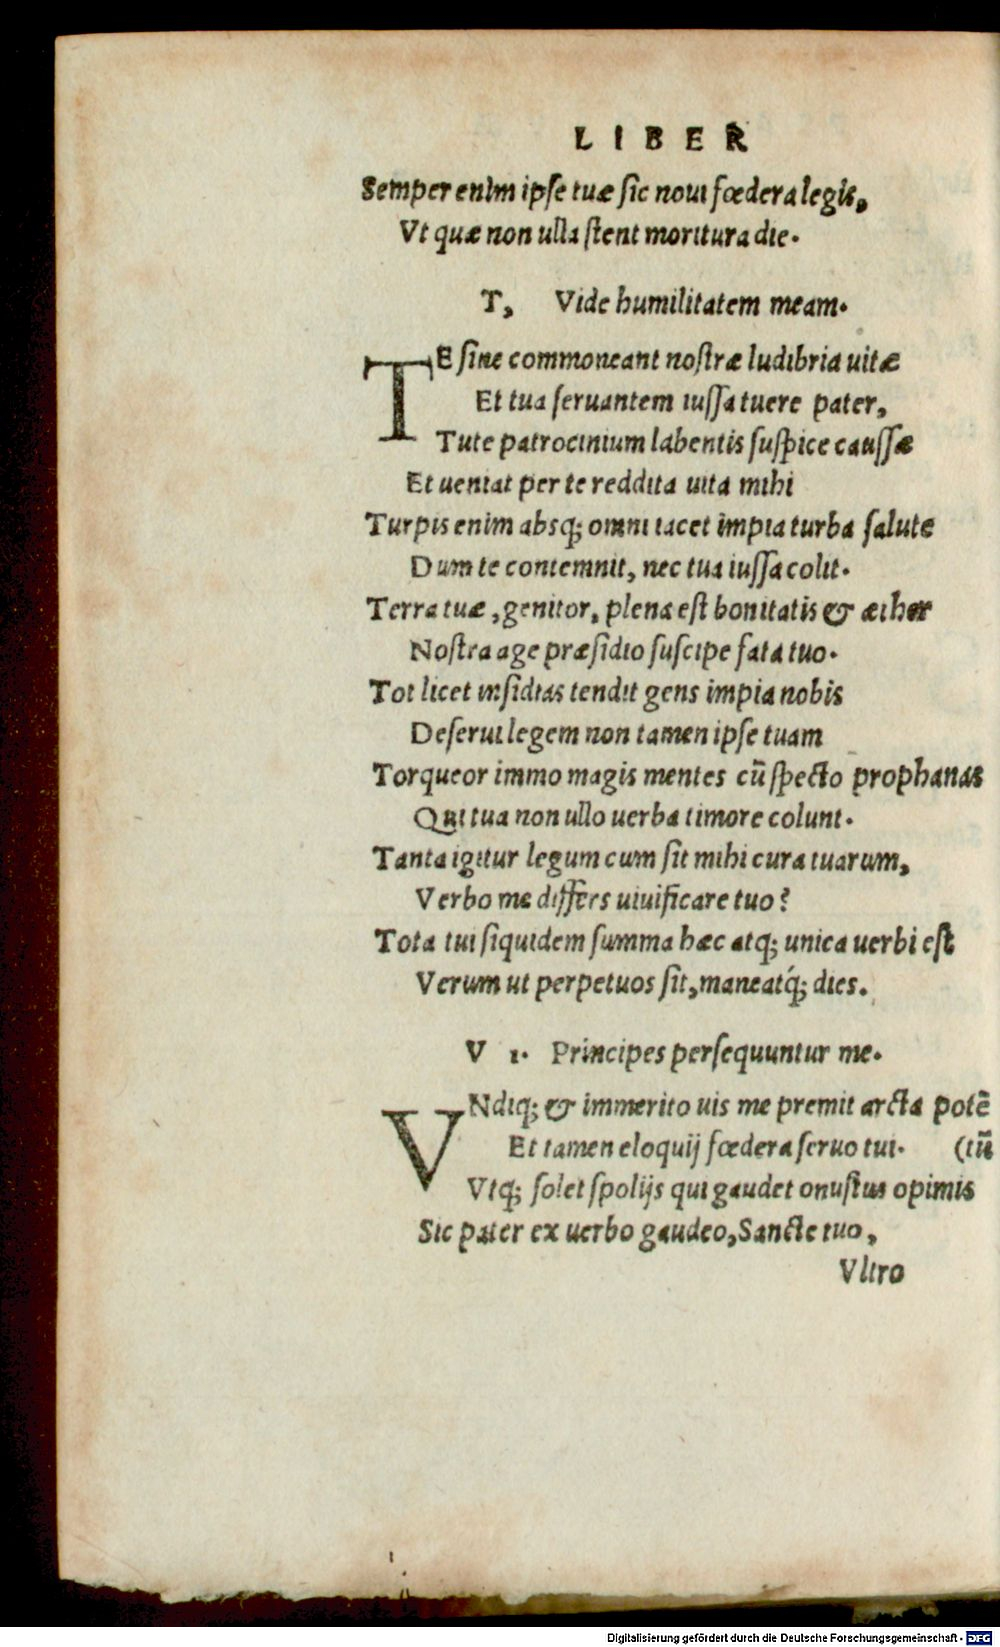 LIBER
Semper enim ipse tuæ sic noui fœdera legis,
Vt quæ non ulla stent moritura die.
T, Vide humilitatem meam.
TE sine commoneant nostræ ludibria uitæ
Et tua seruantem iussa tuere pater,
Tute patrocinium labentis suspice caussæ
Et ueniat per te reddita uita mihi
Turpis enim absq; omni iacet impia turba salute
Dum te contemnit, nec tua iussa colit.
Terra tuæ, genitor, plena est bonitatis & æther
Nostra age præsidio suscipe fata tuo.
Tot licet insidias tendit gens impia nobis
Deserui legem non tamen ipse tuam
Torqueor immo magis mentes cū specto prophanas
Qui tua non ullo uerba timore colunt.
Tanta igitur legum cum sit mihi cura tuarum,
Verbo me differs uiuificare tuo?
Tota tui siquidem summa hæc atq; unica uerbi est
Verum ut perpetuos sit, maneatq́; dies.
V 1. Principes persequuntur me.
VNdiq; & immerito uis me premit arcta potē
Et tamen eloquij fœdera seruo tui. (tū
Vtq; solet spolijs qui gaudet onustus opimis
Sic pater ex uerbo gaudeo, Sancte tuo,
Vltro
Digitalisierung gefördert durch die Deutsche Forschungsgemeinschaft - DFG